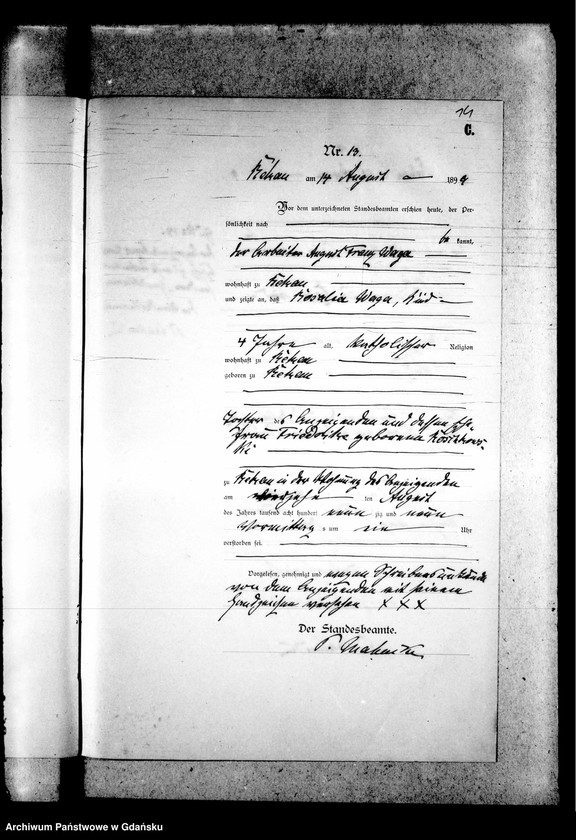 14
C.
Nr. 13.
Rekau am 14 August 1899
Vor dem unterzeichneten Standesbeamten erschien heute, der Per-
sönlichkeit nach
be kannt,
der Arbeiter August Franz Waga
wohnhaft zu Rekau
und zeigte an, daß Rosalia Waga, Kind
4 Jahre alt, katholischer Religion
wohnhaft zu Rekau
geboren zu Rekau
Tochter des Anzeigenden und dessen Ehe-
frau geborenen
zu Rekau in der Wohnung des Anzeigenden
am vierzehn ten August
des Jahres tausend acht hundert neun zig und neun
Vormittags um ein Uhr
verstorben sei.
Vorgelesen, genehmigt und wegen Schreibensunkunde
von dem Anzeigenden mit seinem
Handzeichen versehen X X X
Der Standesbeamte.
Archiwum Państwowe w Gdańsku